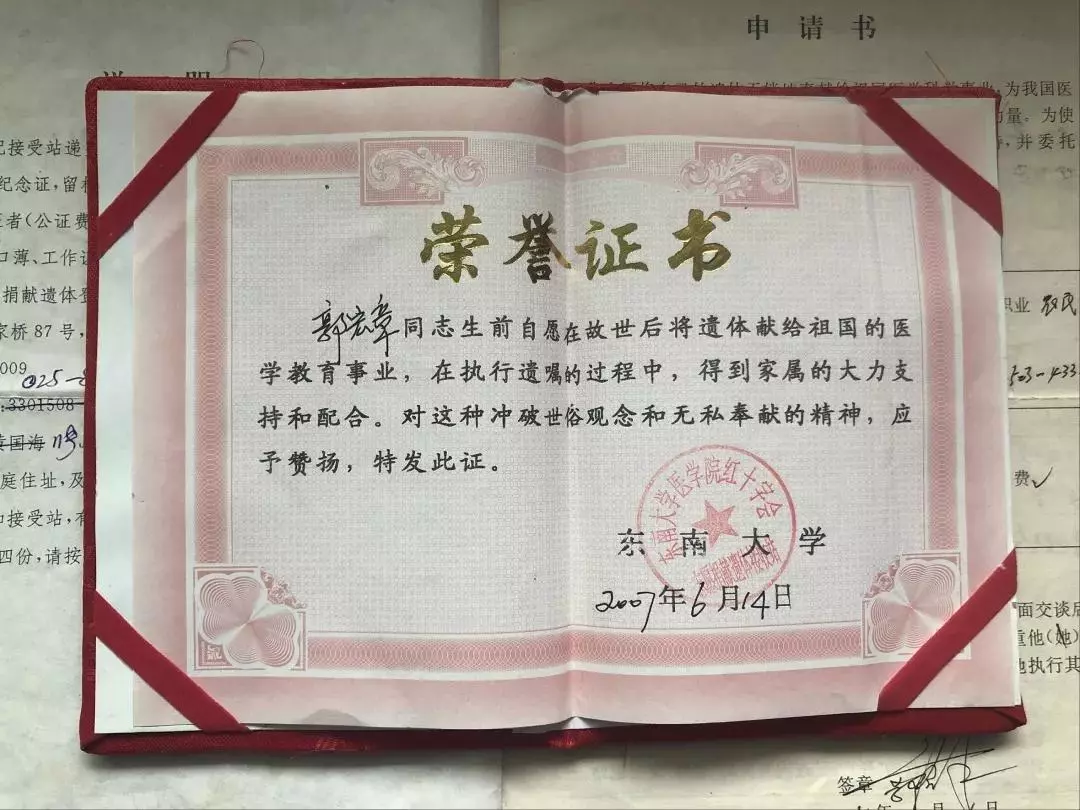 申请书
为我国医
量。为使
并委托
接受站递
纪念证,留
者(公证费
口薄、工作
捐献遗体
家桥87号,
009
025-
3301508
国海
庭住址,及
接受站,有
四份,请按
荣誉证书
郭宏章同志生前自愿在故世后将遗体献给祖国的医
学教育事业,在执行遗嘱的过程中,得到家属的大力支
持和配合。对这种冲破世俗观念和无私奉献的精神,应
予赞扬,特发此证。
东南大学医学院红十字会
东南大学
2007年6月14日
职业 农民
503-433
费✓
面交谈后
重他(她)
他执行其
签章